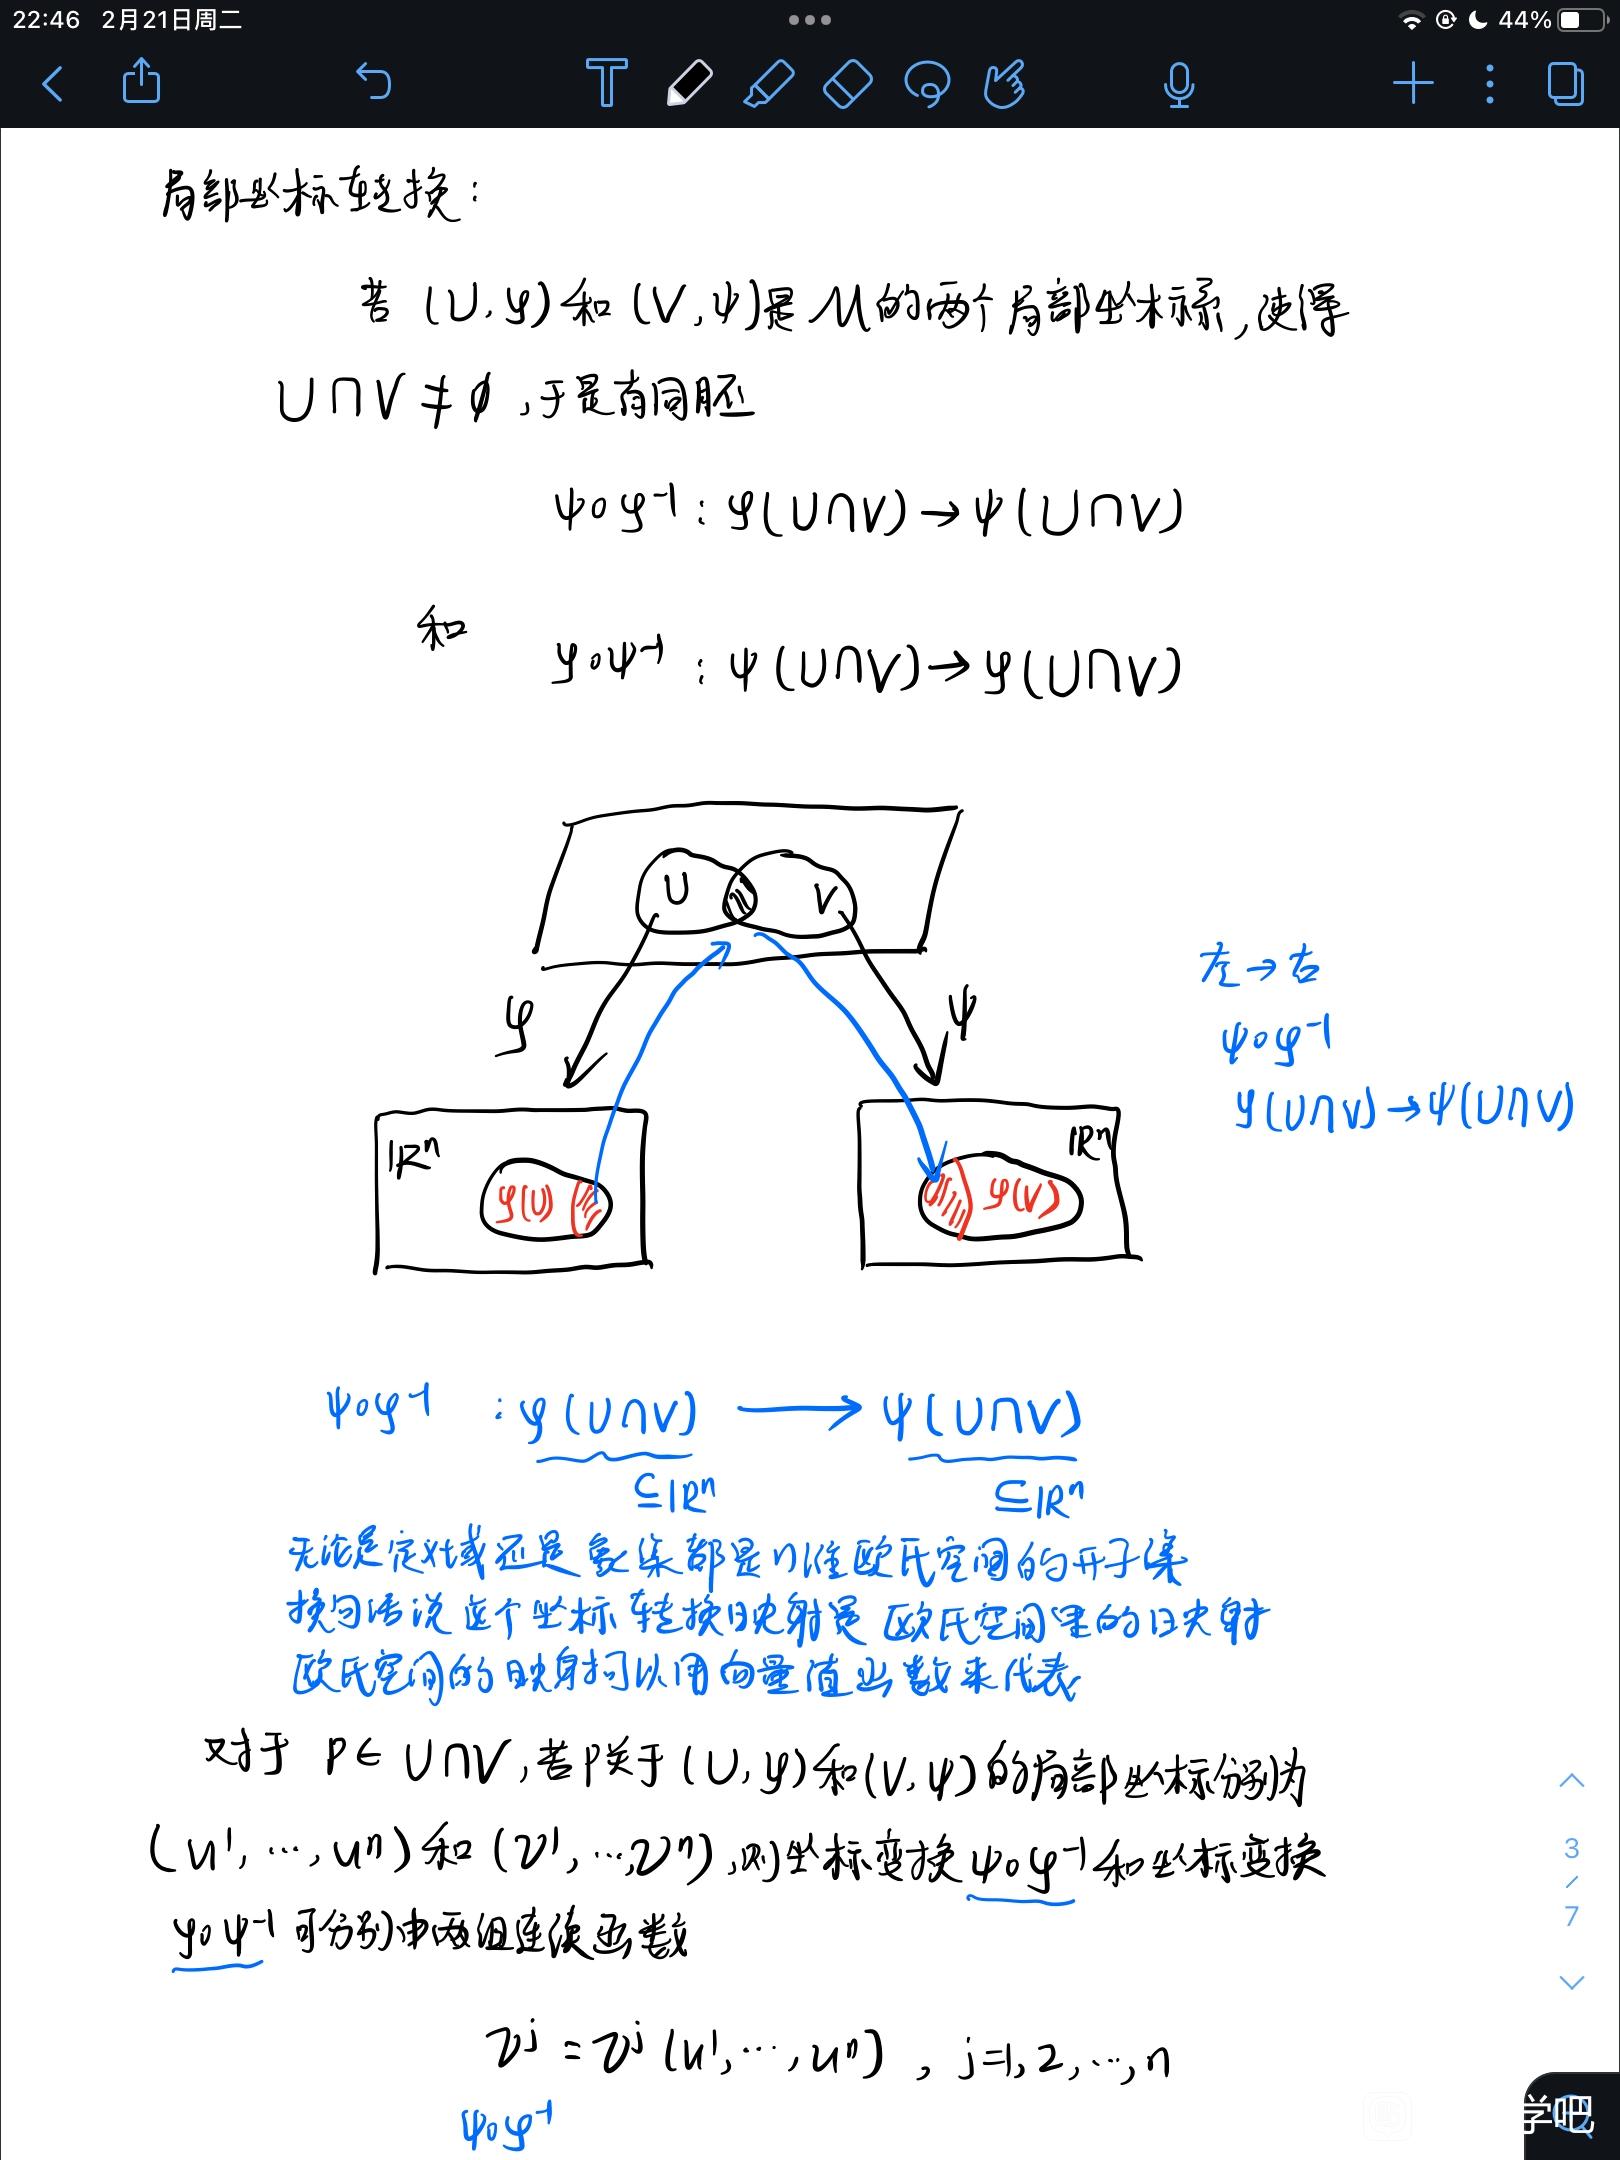 22:46 2月21日周二 44%
局部坐标转换:
若 (U,φ) 和 (V,ψ)是 M 的两个局部坐标系,使得
U∩V≠∅,于是有同胚
ψ∘φ⁻¹: φ(U∩V)→ψ(U∩V)
和
φ∘ψ⁻¹: ψ(U∩V)→φ(U∩V)
U V
φ ψ
左→右
ψ∘φ⁻¹
φ(U∩V)→ψ(U∩V)
ℝⁿ ℝⁿ
φ(U) φ(V)
ψ∘φ⁻¹ : φ(U∩V) ⟶ ψ(U∩V)
⊆ℝⁿ ⊆ℝⁿ
无论是定义域还是象集都是n维欧氏空间的开子集
换句话说这个坐标转换映射是欧氏空间里的映射
欧氏空间的映射可以用向量值函数来代表
对于 p∈U∩V,若p关于(U,φ)和(V,ψ)的局部坐标分别为
(u¹,…,uⁿ)和(v¹,…,vⁿ),则坐标变换ψ∘φ⁻¹和坐标变换
φ∘ψ⁻¹可分别由两组连续函数
vʲ=vʲ(u¹,…,uⁿ), j=1,2,…,n
ψ∘φ⁻¹
3
/
7
学吧